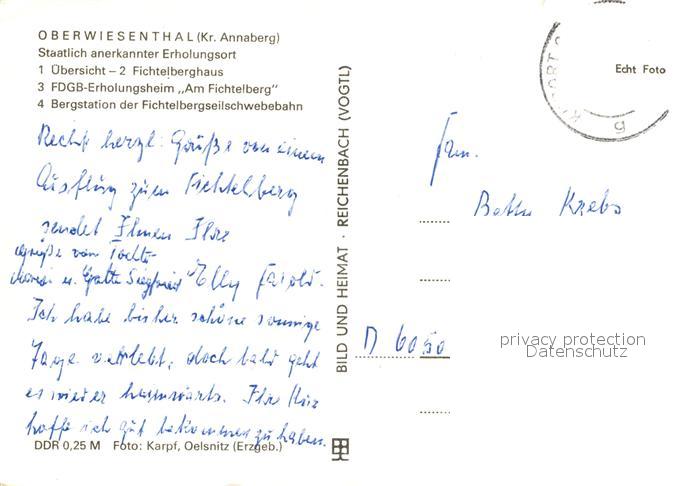 OBERWIESENTHAL (Kr. Annaberg)
Staatlich anerkannter Erholungsort
1 Übersicht – 2 Fichtelberghaus
3 FDGB-Erholungsheim „Am Fichtelberg"
4 Bergstation der Fichtelbergseilschwebebahn
Recht herzl. Grüße von einem
Ausflug zum Fichtelberg
sendet Ihnen Ihre
Grüße von Tochter
u. Gatte Siegfried Elly
Ich habe bisher schöne sonnige
Tage verlebt, doch bald geht
es wieder heimwärts. Ihre Kur
hoffe ich gut bekommen zu haben.
DDR 0,25 M Foto: Karpf, Oelsnitz (Erzgeb.)
BILD UND HEIMAT · REICHENBACH (VOGTL)
Echt Foto
Fam.
Krebs
D 6050
privacy protection
Datenschutz